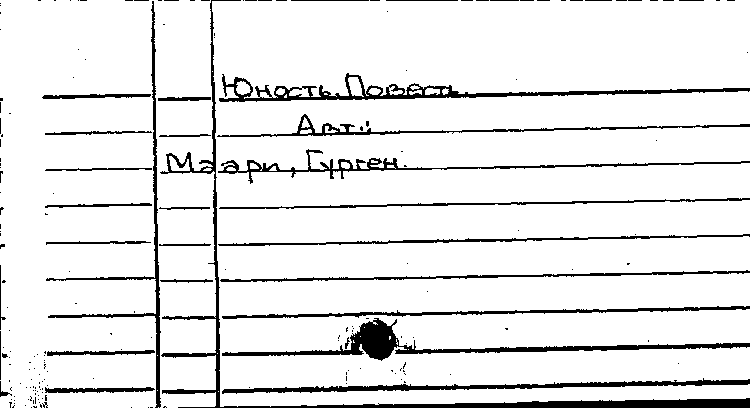 Юность. Повесть.
Авт.:
Маари, Гурген.